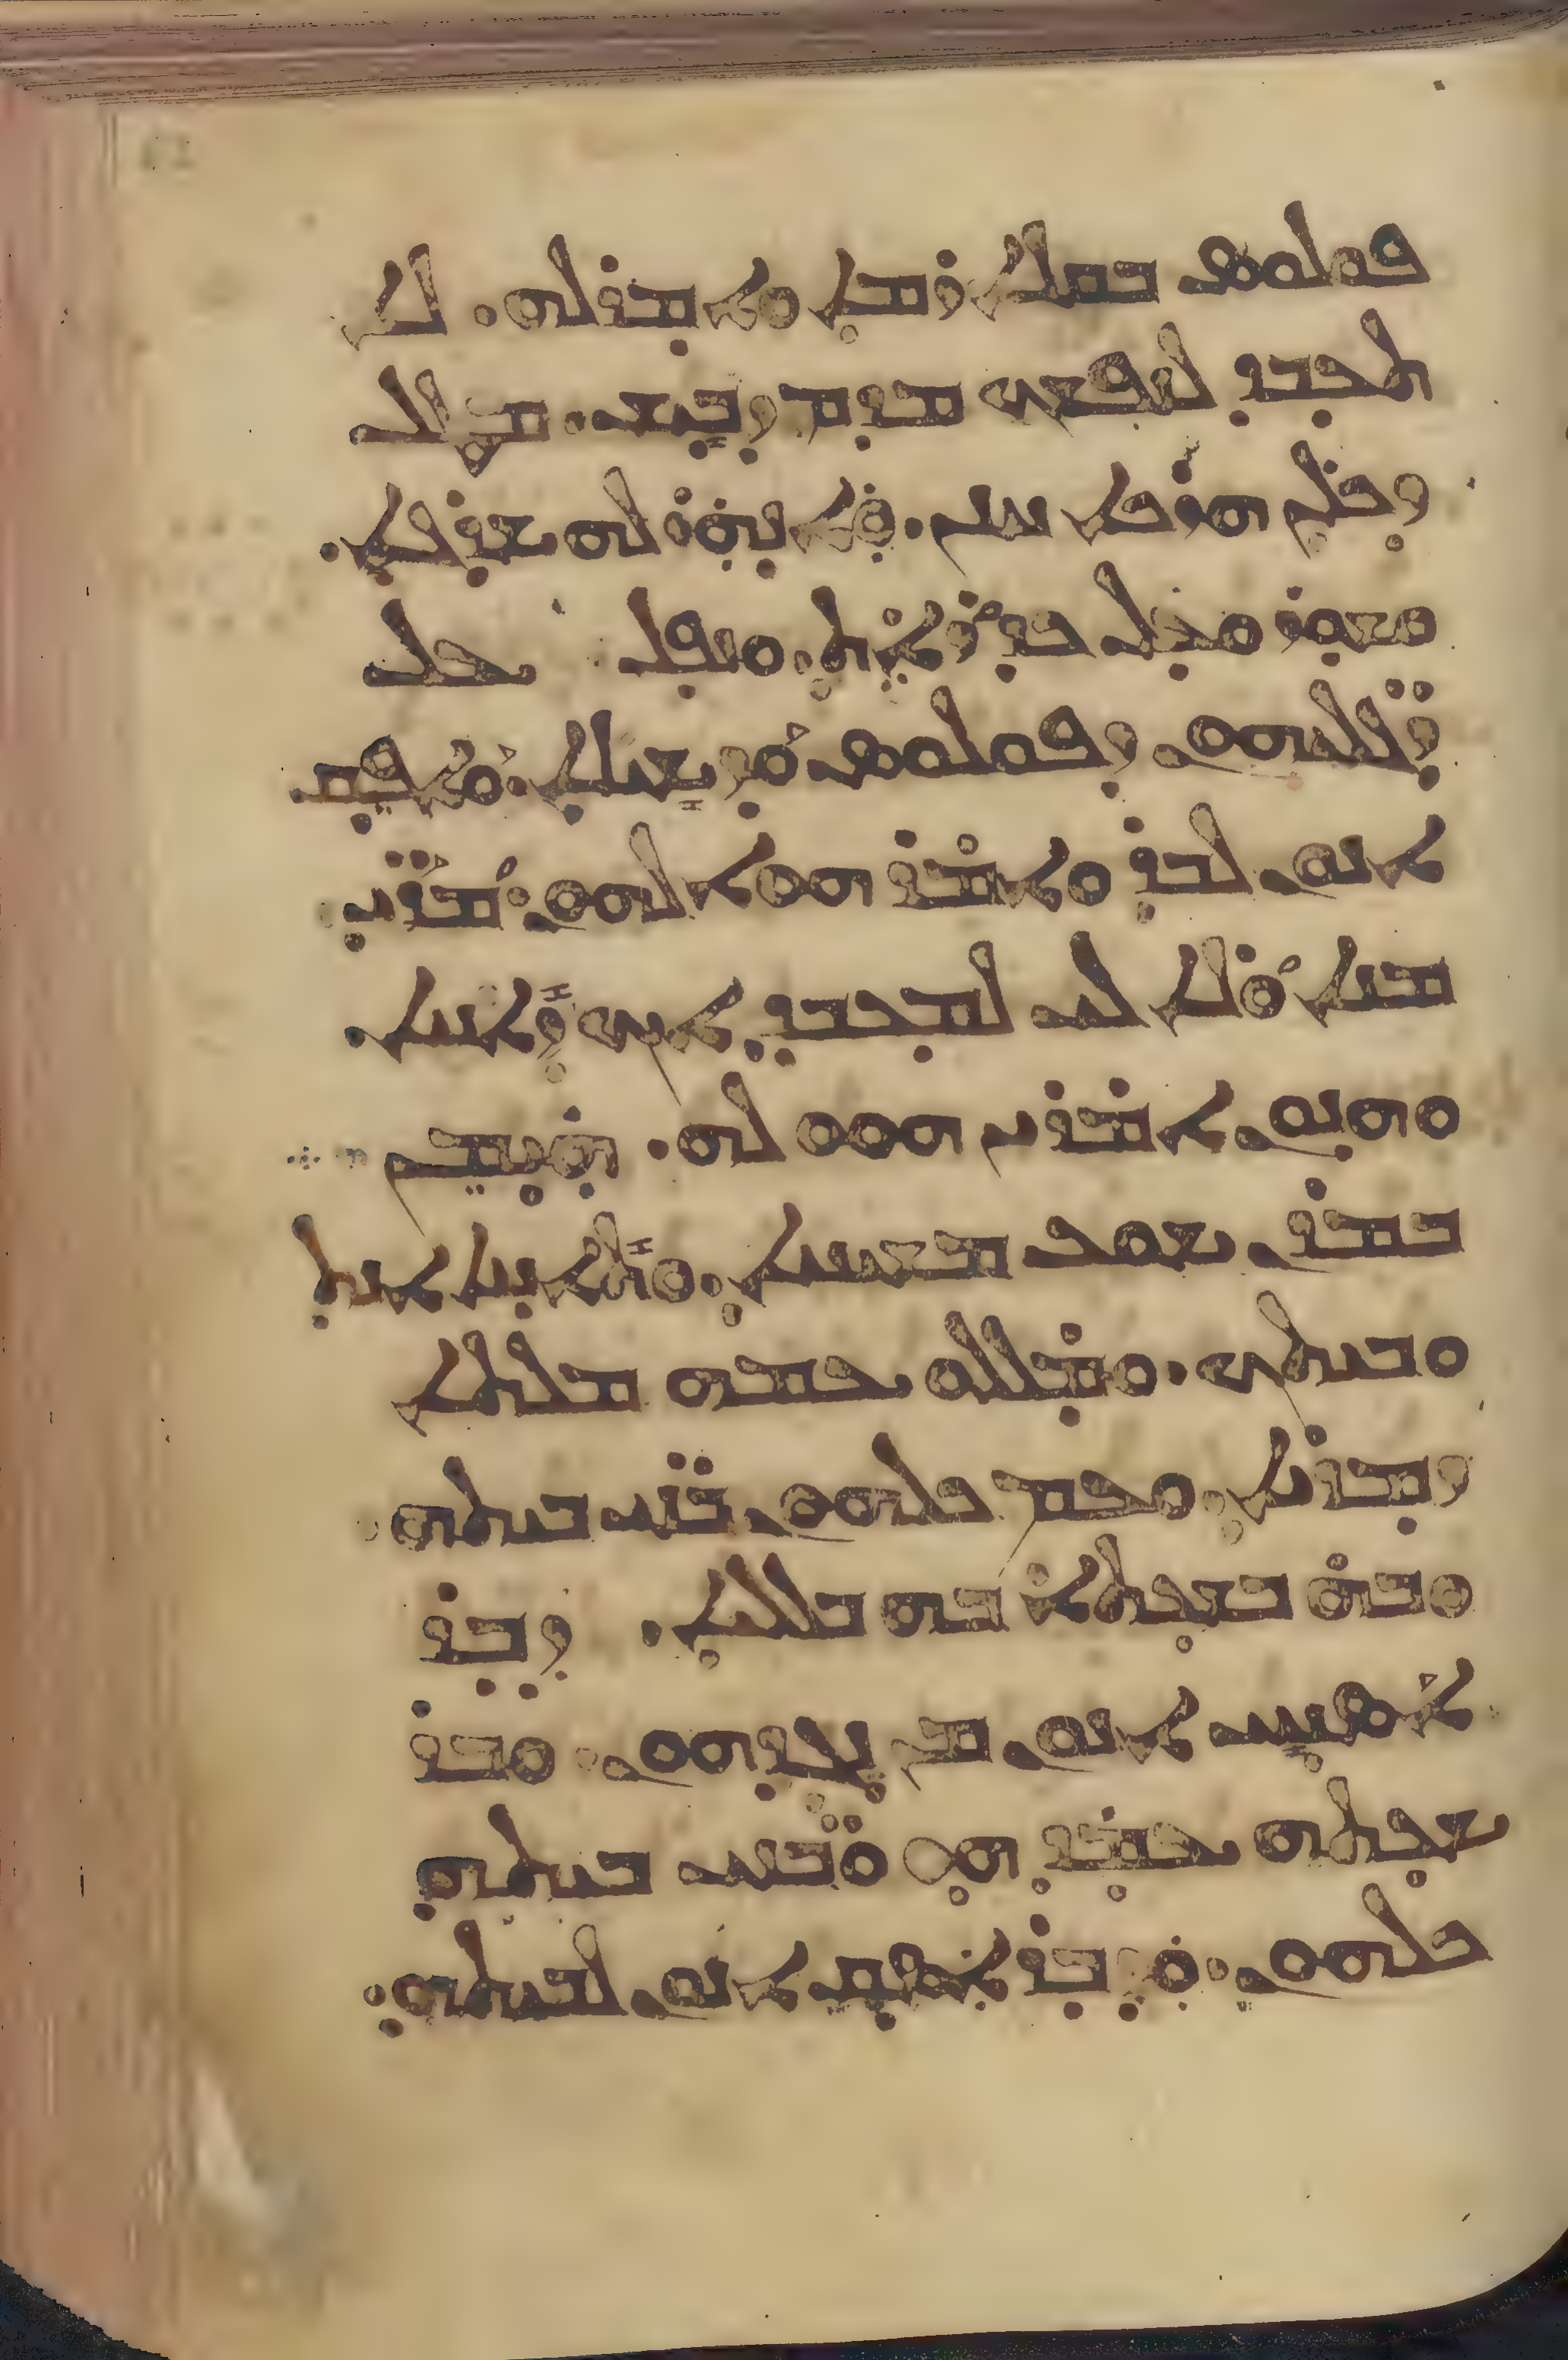 ܦܘܠܘܣ ܒܩܠܐ ܪܡܐ ܘܐܡܪ ܠܗ. ܠܐ
ܬܥܒܕ ܠܢܦܫܟ ܡܕܡ ܕܒܝܫ. ܡܛܠ
ܕܟܠܢ ܗܪܟܐ ܚܢܢ. ܘܐܢܗܪ ܠܗ ܫܪܓܐ.
ܘܫܘܪ ܘܥܠ ܟܕ ܪܐܬ. ܘܢܦܠ ܥܠ
ܪܓܠܝܗܘܢ ܕܦܘܠܘܣ ܘܕܫܝܠܐ. ܘܐܦܩ
ܐܢܘܢ ܠܒܪ ܘܐܡܪ ܗܘܐ ܠܗܘܢ. ܡܪܝ
ܡܢܐ ܘܠܐ ܠܝ ܠܡܥܒܕ ܐܝܟ ܕܐܚܐ.
ܘܗܢܘܢ ܐܡܪܝܢ ܗܘܘ ܠܗ. ܗܝܡܢ
ܒܡܪܢ ܝܫܘܥ ܡܫܝܚܐ. ܘܬܐܚܐ ܐܢܬ
ܘܒܝܬܟ. ܘܡܠܠܘ ܥܡܗ ܡܠܬܐ
ܕܡܪܝܐ. ܘܥܡ ܟܠܗܘܢ ܒܢܝ ܒܝܬܗ.
ܘܒܗ ܒܫܥܬܐ ܒܗ ܒܠܠܝܐ. ܕܒܪ
ܐܣܚܝ ܐܢܘܢ ܡܢ ܢܓܕܝܗܘܢ. ܘܒܪ
ܫܥܬܗ ܥܡܕ ܗܘ ܘܒܢܝ ܒܝܬܗ
ܟܠܗܘܢ. ܘܕܒܪ ܐܣܩ ܐܢܘܢ ܠܒܝܬܗ.